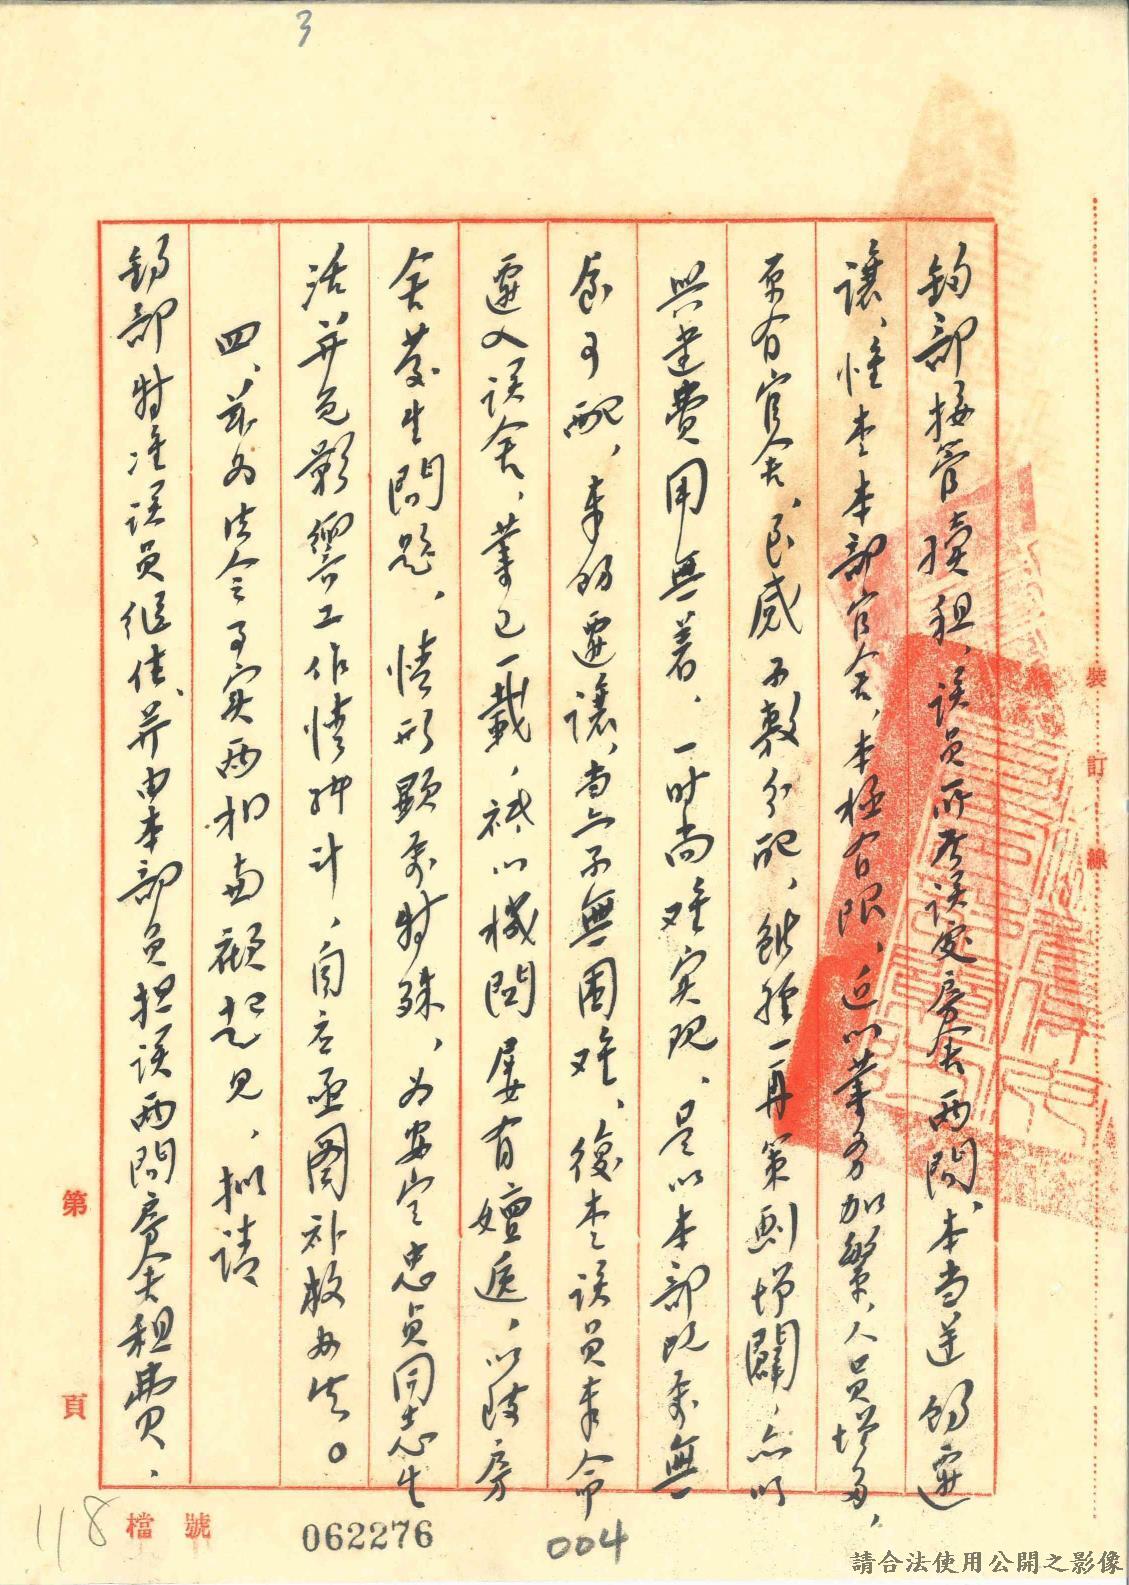 3
鈞部接管續租，該員所居該處房舍兩間，本當遵飭遷
讓，惟查本部官舍，本極有限，近以業務加繁，人員增多，
原有官舍，已感不敷分配，雖經一再策劃增闢，亦以
興建費用無著，一時尚難實現，是以本部既無
舍可配，奉飭遷讓，當亦不無困難，復查該員奉命
遷入該舍，業已一載，祗以機關屢有嬗遞，以致房
舍發生問題，情形顯為特殊，為安定忠貞同志生
活并免影響工作情緒計，自應亟圖補救辦法。
四、茲為法令事實兩相兼顧起見，擬請
鈞部特准該員繼住，并由本部負担該兩間房舍租費，
裝訂線
第頁
檔號
118
062276
004
請合法使用公開之影像